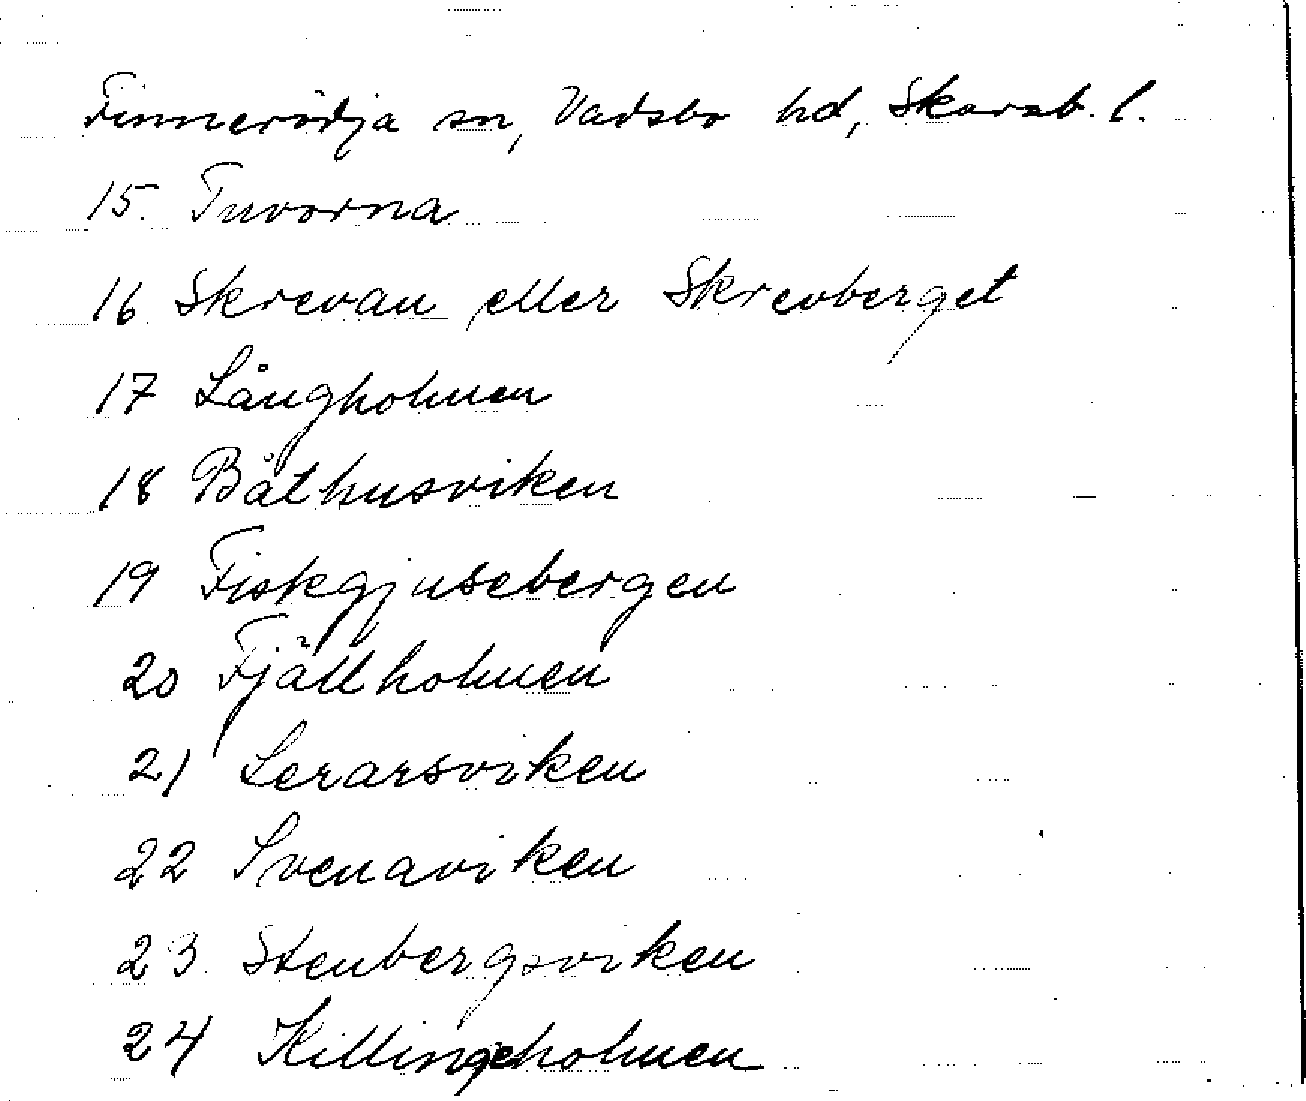 Finnerödja sn, Vadsbo hd, Skarab. l.
15. Tuvorna
16 Skrevan eller Skrevberget
17 Långholmen
18 Båthusviken
19 Fiskgjusebergen
20 Fjällholmen
21 Lerarsviken
22 Svenaviken
23. Stenbergsviken
24 Killingeholmen